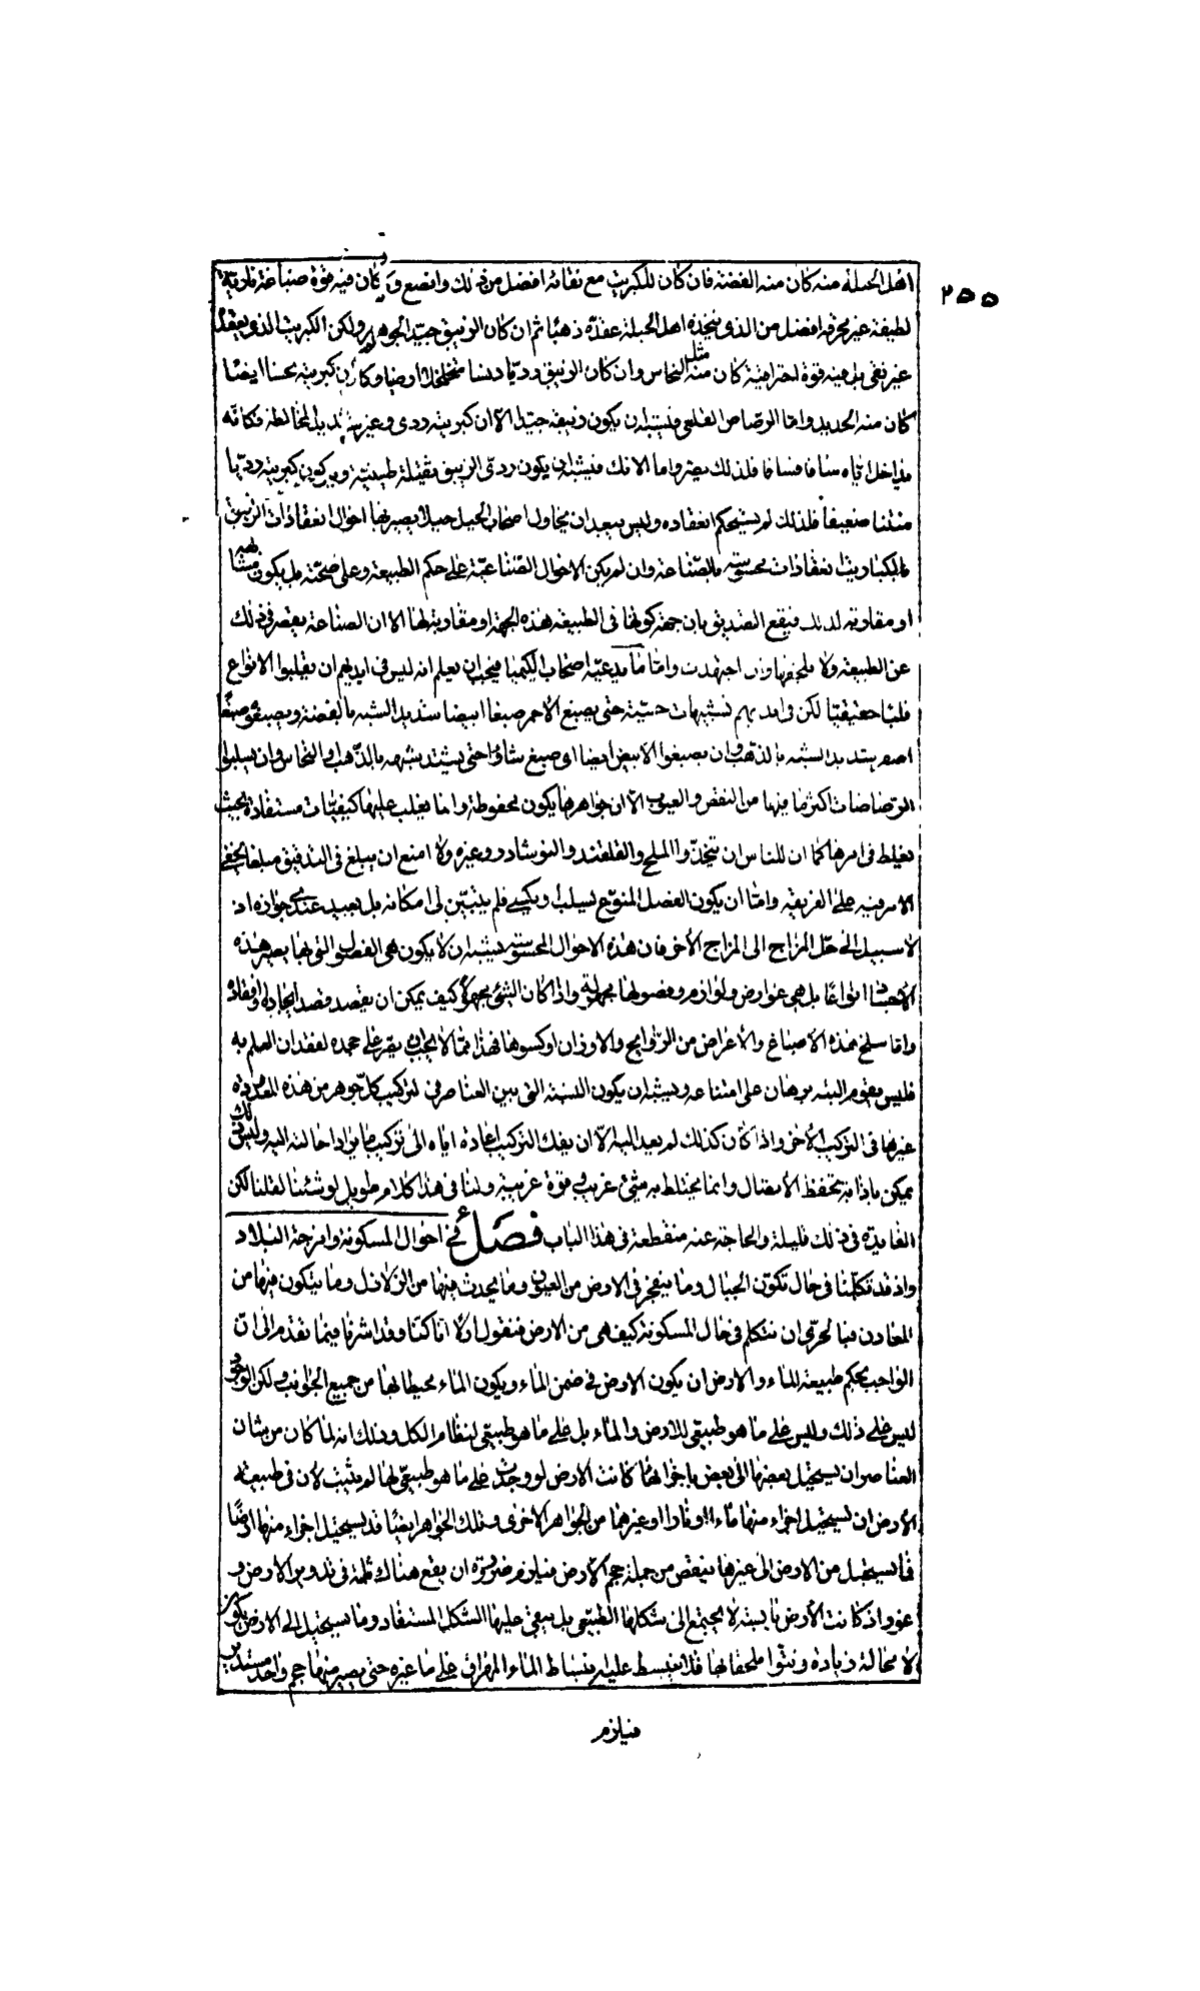 ٢٥٥
اهل الحيلة منه كان منه الفضة فان كان للكبريت مع نقائه افضل من ذلك وانصع و كان فيه قوة صباغة نارية
لطيفة غير محرقة افضل من الذى يتخذه اهل الحيلة عقده ذهبًا ثم ان كان الزيبق جيد الجوهر ولكن الكبريت الذى يعقده
غير نقى بل فيه قوة احتراقية كان منه مثل النحاس وان كان الزيبق رديًا دنسا متخلخلا ارضيا وكان كبريته نجسا ايضا
كان منه الحديد واما الرصاص القلعى فيشبه ان يكون زيبقه جيدا الا ان كبريته ردى وغير شديد المخالطة فكانه
مداخل اياه سافا فسافا فلذلك يصر واما الانك فيشبه ان يكون ردى الزيبق ثقيلة طينية ويكون كبريته رديا
منتنا ضعيفا فلذلك لم يستحكم انعقاده وليس ببعيد ان يحاول اصحاب الحيل حيلا يصير بها احوال انعقادات الزيبق
بالكباريت انعقادات محسوسة بالصناعة وان لم يكن الاحوال الصناعية على حكم الطبيعة وعلى صحته بل يكون مشابهة
او مقاربة لذلك فيقع التصديق بان جهة كونها فى الطبيعة هذه الجهة او مقاربة لها الا ان الصناعة يقصر فى ذلك
عن الطبيعة ولا يلحقها وان اجتهدت واما ما يدعيه اصحاب الكيميا فيجب ان يعلم انه ليس فى ايديهم ان يقلبوا الانواع
قلبا حقيقيا لكن فى ايديهم تشبيهات حسية حتى يصبغ الاحمر صبغا ابيضا شديد الشبه بالفضة ويصبغوه صبغًا
اصفر شديد الشبه بالذهب وان يصبغوا الابيض ايضا اى صبغ شاؤا حتى يشتد شبهه بالذهب او النحاس وان يسلبوا
الرصاصات اكثر ما فيها من النقص والعيوب الا ان جواهرها يكون محفوظة وانما يغلب عليها كيفيات مستفادة بحيث
يغلط فى امرها كما ان للناس ان يتخذوا الملح والقلقند والنوشادر وغيره ولا امنع ان يبلغ فى التدقيق مبلغا يخفى
الامر فيه على الفرقة واما ان يكون الفصل المنوع يسلب او يكسى فلم يتبين لى امكانه بل بعيد عندى جوازه اذ
لا سبيل الى حل المزاج الى المزاج الاخر فان هذه الاحوال المحسوسة يشبه ان لا يكون هى الفصول التى بها يصير هذه
الاجساد انواعًا بل هى عوارض ولوازم وفصولها مجهولة واذا كان الشئ مجهولا كيف يمكن ان يقصد قصد ايجاده او افقاده
واما سلخ هذه الاصباغ والاعراض من الروايح والاوزان او كسوها فهذا مما لا يجب ان يصر على جحده لفقدان العلم به
فليس يقوم البتة برهان على امتناعه ويشبه ان يكون النسبة التى بين العناصر فى تركيب كل جوهر من هذه المعدودة
غيرها فى التركيب الاخر واذا كان كذلك لم يعد اليه الا ان يفك التركيب اعادة اياه الى تركيب ما يراد احالته اليه وليس ذلك
يمكن باذابة تحفظ الاتصال وانما يختلط به شئ غريب وقوة غريبة ولنا فى هذا كلام طويل لو شئنا لقلنا لكن
الفايدة فى ذلك قليلة والحاجة عنه منقطعة فى هذا الباب فصل فى احوال المسكونة وامزجة البلاد
واذ قد تكلمنا فى حال تكوّن الجبال وما ينفجر فى الارض من العيون وما يحدث فيها من الزلازل وما يتكون فيها من
المعادن فبالحرى ان نتكلم فى حال المسكونة كيف هى من الارض فنقول اولا انا كنا وقد اشرنا فيما تقدم الى ان
الواجب بحكم طبيعة الماء والارض ان يكون الارض فى ضمن الماء ويكون الماء محيطا بها من جميع الجوانب ولكن الوجود
ليس على ذلك وليس على ما هو طبيعى للارض والماء بل على ما هو طبيعى لنظام الكل وذلك انه لما كان من شان
العناصر ان يستحيل بعضها الى بعض باجزائها كانت الارض لو وجدت على ما هو طبيعى لها لم يثبت لان فى طبيعة
الارض ان تستحيل اجزاء منها ماء او نارا او غيرهما من الجواهر الاخرى وتلك الجواهر ايضًا قد يستحيل اجزاء منها ارضًا
فما يستحيل من الارض الى غيرها ينقص من جملة حجم الارض فيلزم ضرورة ان يقع هناك ثلمة فى تدوير الارض و
غور واذ كانت الارض يابسة لا يجتمع الى شكلها الطبيعى بل يبقى عليها الشكل المستفاد وما يستحيل الى الارض يكون
لا محالة زيادة ونتوا ملحقا بها فلا ينبسط عليه انبساط الماء المهراق على ما غيره حتى يصير منها حجم واحد مستدير
فيلزم